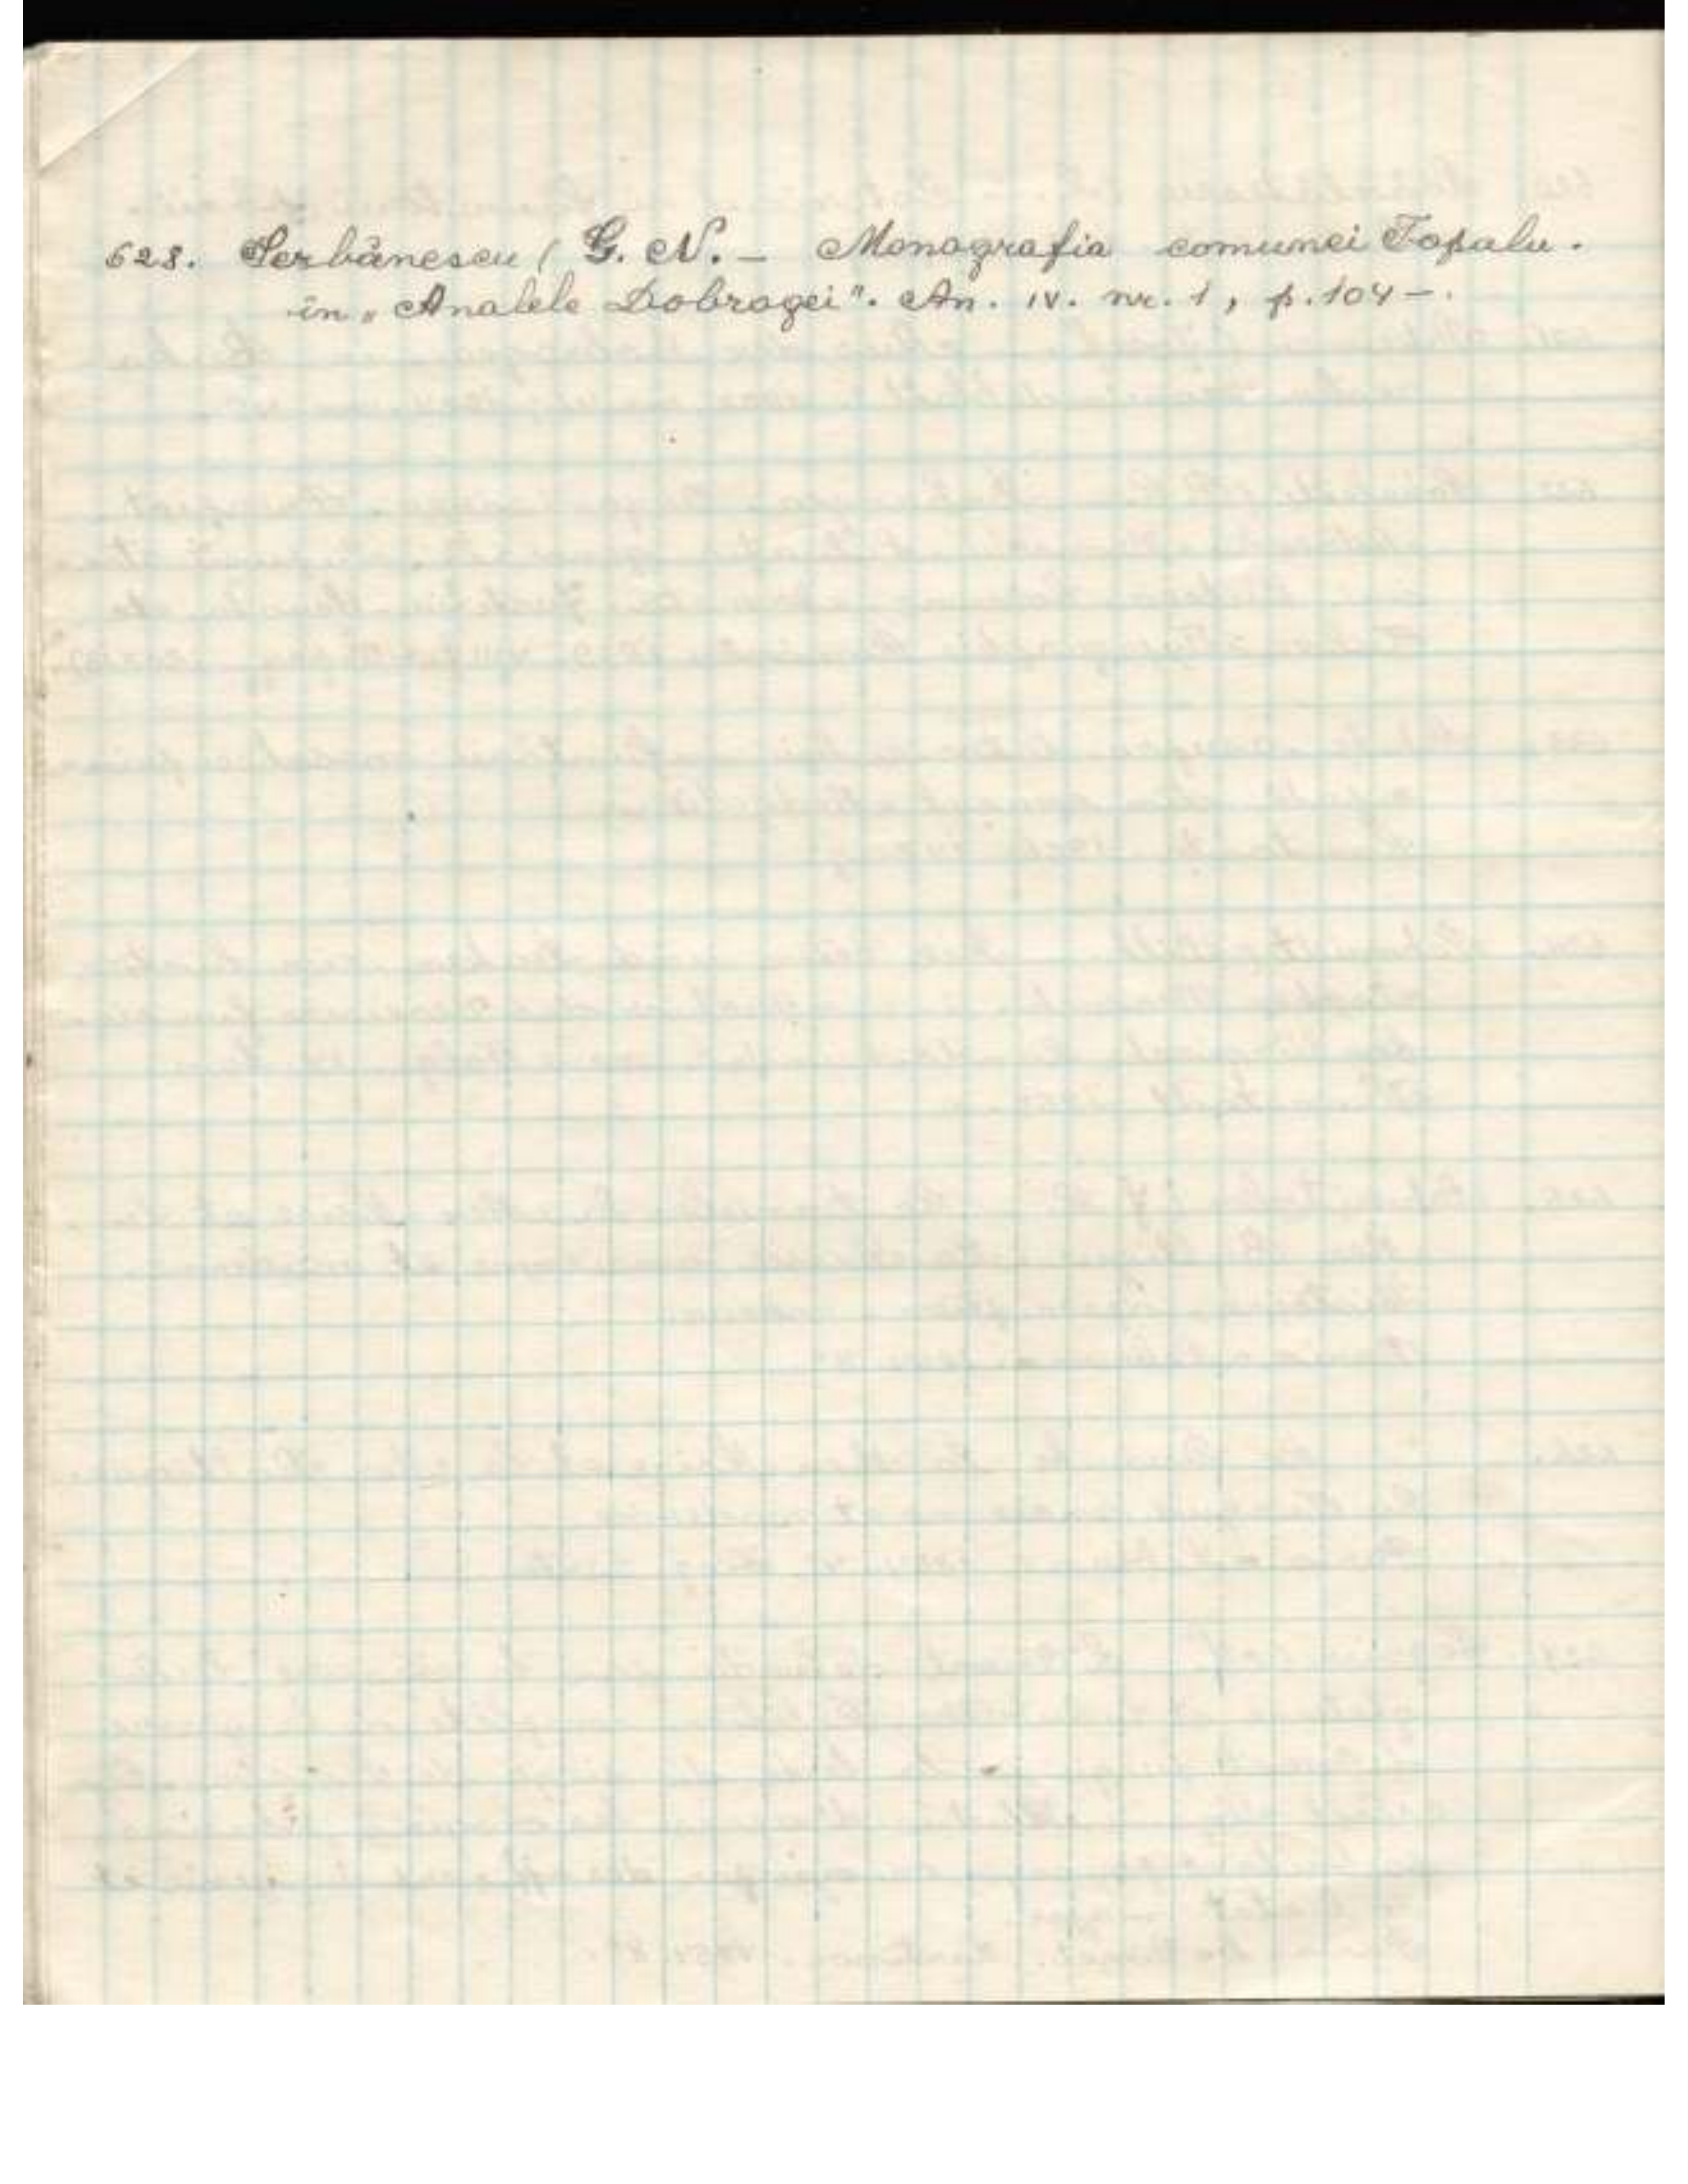 628. Serbănescu ( G. N. – Monografia comunei Topalu.
în „Analele Dobrogei". An. IV. nr. 1, p. 104 –.